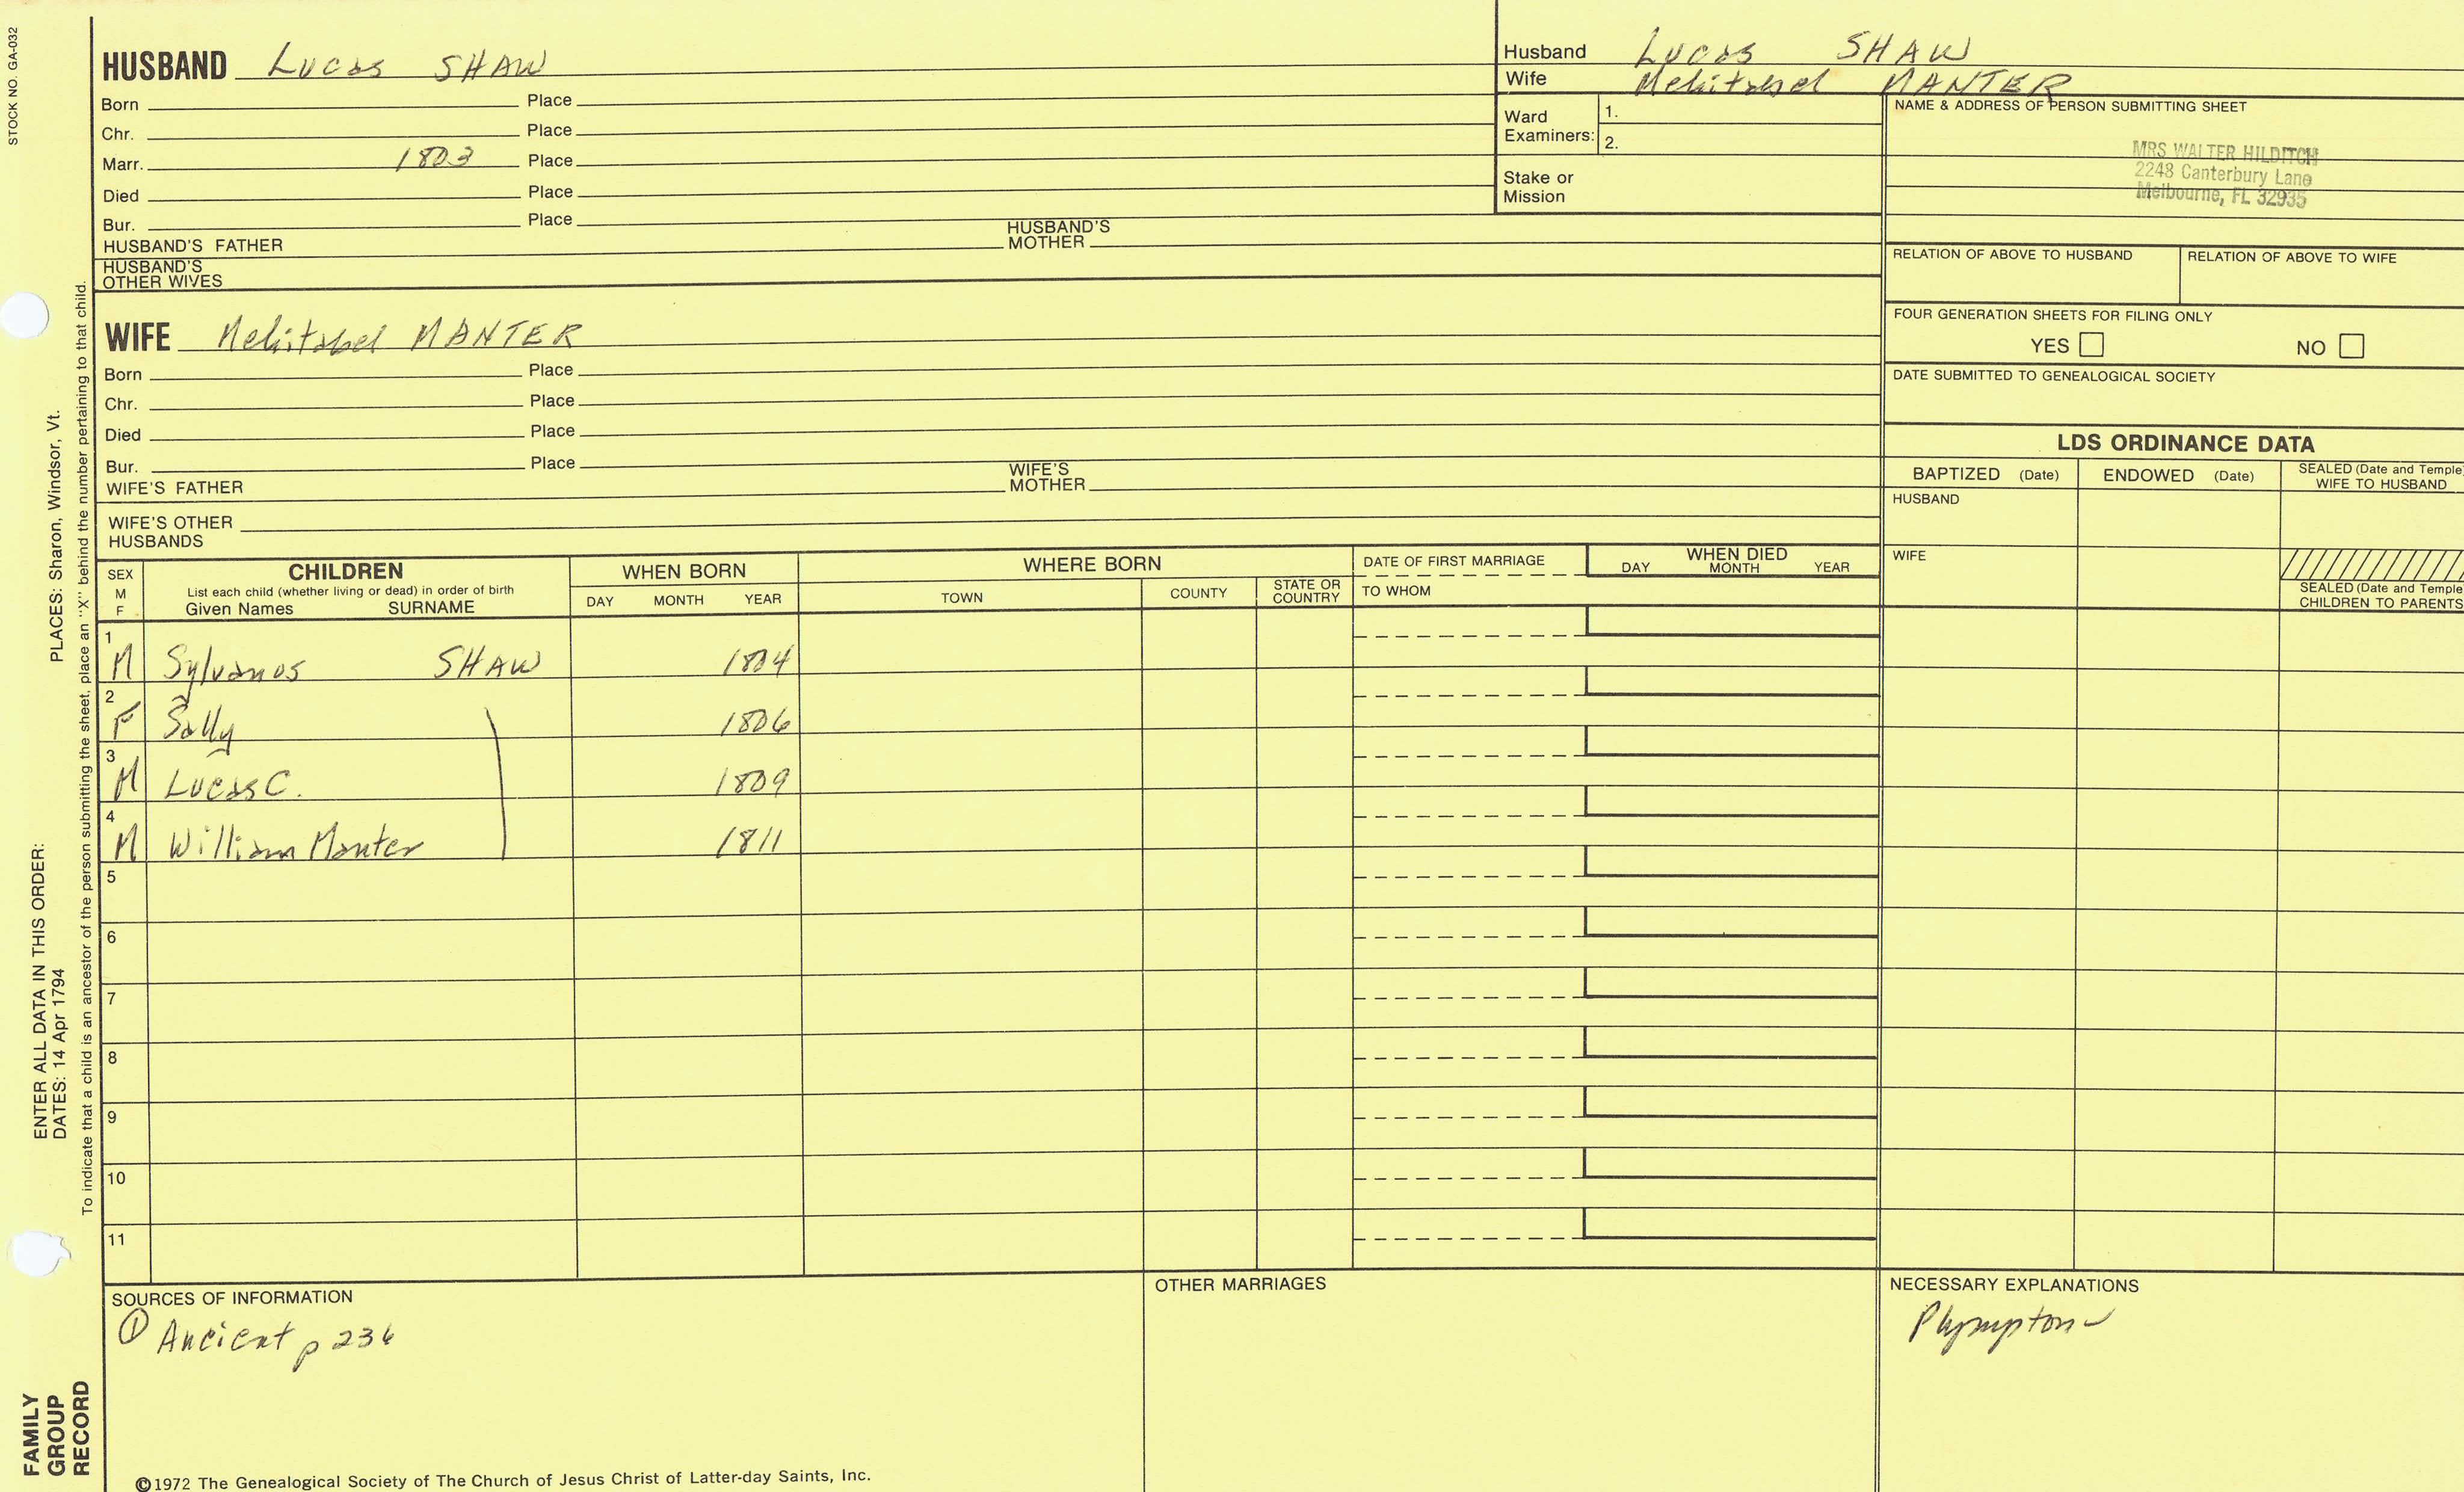 STOCK NO. GA-032
HUSBAND Lucas SHAW
Born Place
Chr. Place
Marr. 1803 Place
Died Place
Bur. Place
HUSBAND'S FATHER HUSBAND'S MOTHER
HUSBAND'S OTHER WIVES
Husband Lucas SHAW
Wife Mehitabel MANTER
Ward Examiners: 1.
2.
Stake or Mission
NAME & ADDRESS OF PERSON SUBMITTING SHEET
MRS WALTER HILDITCH
2248 Canterbury Lane
Melbourne, FL 32935
RELATION OF ABOVE TO HUSBAND RELATION OF ABOVE TO WIFE
FOUR GENERATION SHEETS FOR FILING ONLY
YES NO
DATE SUBMITTED TO GENEALOGICAL SOCIETY
WIFE Mehitabel MANTER
Born Place
Chr. Place
Died Place
Bur. Place
WIFE'S FATHER WIFE'S MOTHER
WIFE'S OTHER HUSBANDS
LDS ORDINANCE DATA
BAPTIZED (Date) ENDOWED (Date) SEALED (Date and Temple
WIFE TO HUSBAND
HUSBAND
WIFE
SEALED (Date and Temple
CHILDREN TO PARENTS
SEX M F
CHILDREN
List each child (whether living or dead) in order of birth
Given Names SURNAME
WHEN BORN
DAY MONTH YEAR
WHERE BORN
TOWN COUNTY STATE OR COUNTRY
DATE OF FIRST MARRIAGE
TO WHOM
WHEN DIED
DAY MONTH YEAR
1 M Sylvanos SHAW 1804
2 F Sally 1806
3 M Lucas C. 1809
4 M William Manter 1811
5
6
7
8
9
10
11
SOURCES OF INFORMATION
① Ancient p 236
OTHER MARRIAGES
NECESSARY EXPLANATIONS
Plympton
©1972 The Genealogical Society of The Church of Jesus Christ of Latter-day Saints, Inc.
PLACES: Sharon, Windsor, Vt.
ENTER ALL DATA IN THIS ORDER:
DATES: 14 Apr 1794
To indicate that a child is an ancestor of the person submitting the sheet, place an "X" behind the number pertaining to that child.
FAMILY
GROUP
RECORD